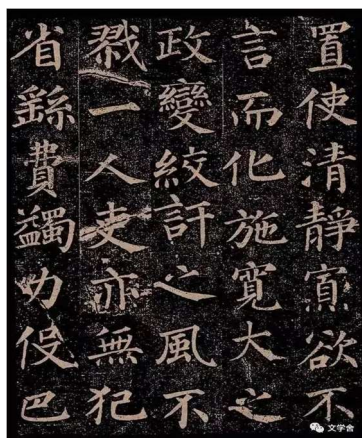 置使清靜寡欲不
言而化施寬大之
政變絞訐之風不
戮一人吏亦無犯
省繇費蠲力役巴
文学舍